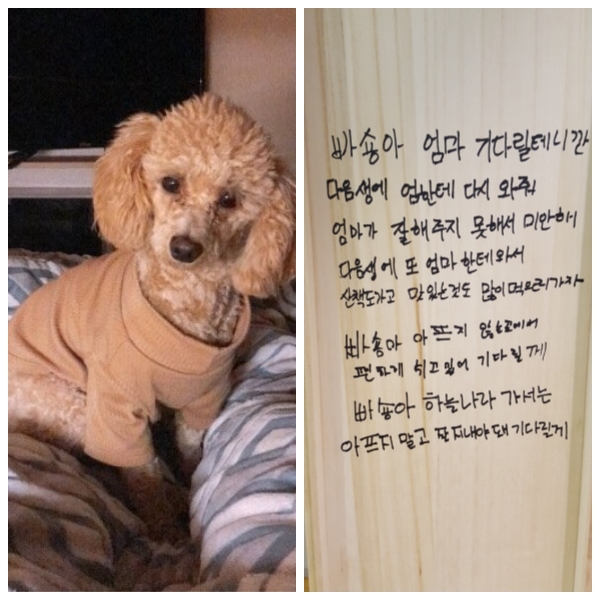 빠숑아 엄마 기다릴테니깐
다음생에 엄한테 다시 와줘
엄마가 잘해주지 못해서 미안해
다음생에 또 엄마한테와서
산책도가고 맛있는것도 많이먹으러가자
빠숑아 아프지 않는곳에서
편하게 쉬고있어 기다릴게
빠숑아 하늘나라 가서는
아프지말고 잘지내야돼 기다릴게